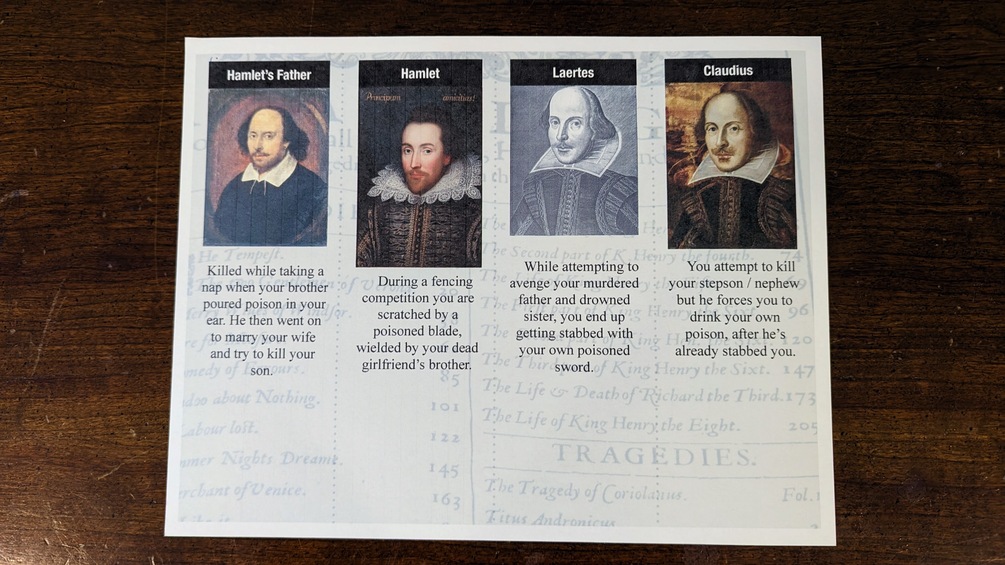 Hamlet's Father
Killed while taking a
nap when your brother
poured poison in your
ear. He then went on
to marry your wife
and try to kill your
son.
Hamlet
Principum amicitias!
During a fencing
competition you are
scratched by a
poisoned blade,
wielded by your dead
girlfriend's brother.
Laertes
While attempting to
avenge your murdered
father and drowned
sister, you end up
getting stabbed with
your own poisoned
sword.
Claudius
You attempt to kill
your stepson / nephew
but he forces you to
drink your own
poison, after he's
already stabbed you.
He Tempest.
85
about Nothing.
101
Labour lost.
122
Nights Dreame.
145
of Venice.
163
The Second part of K. Henry the fourth. 74
96
120
of King Henry the Sixt. 147
The Life & Death of Richard the Third. 173
The Life of King Henry the Eight. 205
TRAGEDIES.
The Tragedy of Coriolanus. Fol.
Titus Andronicus